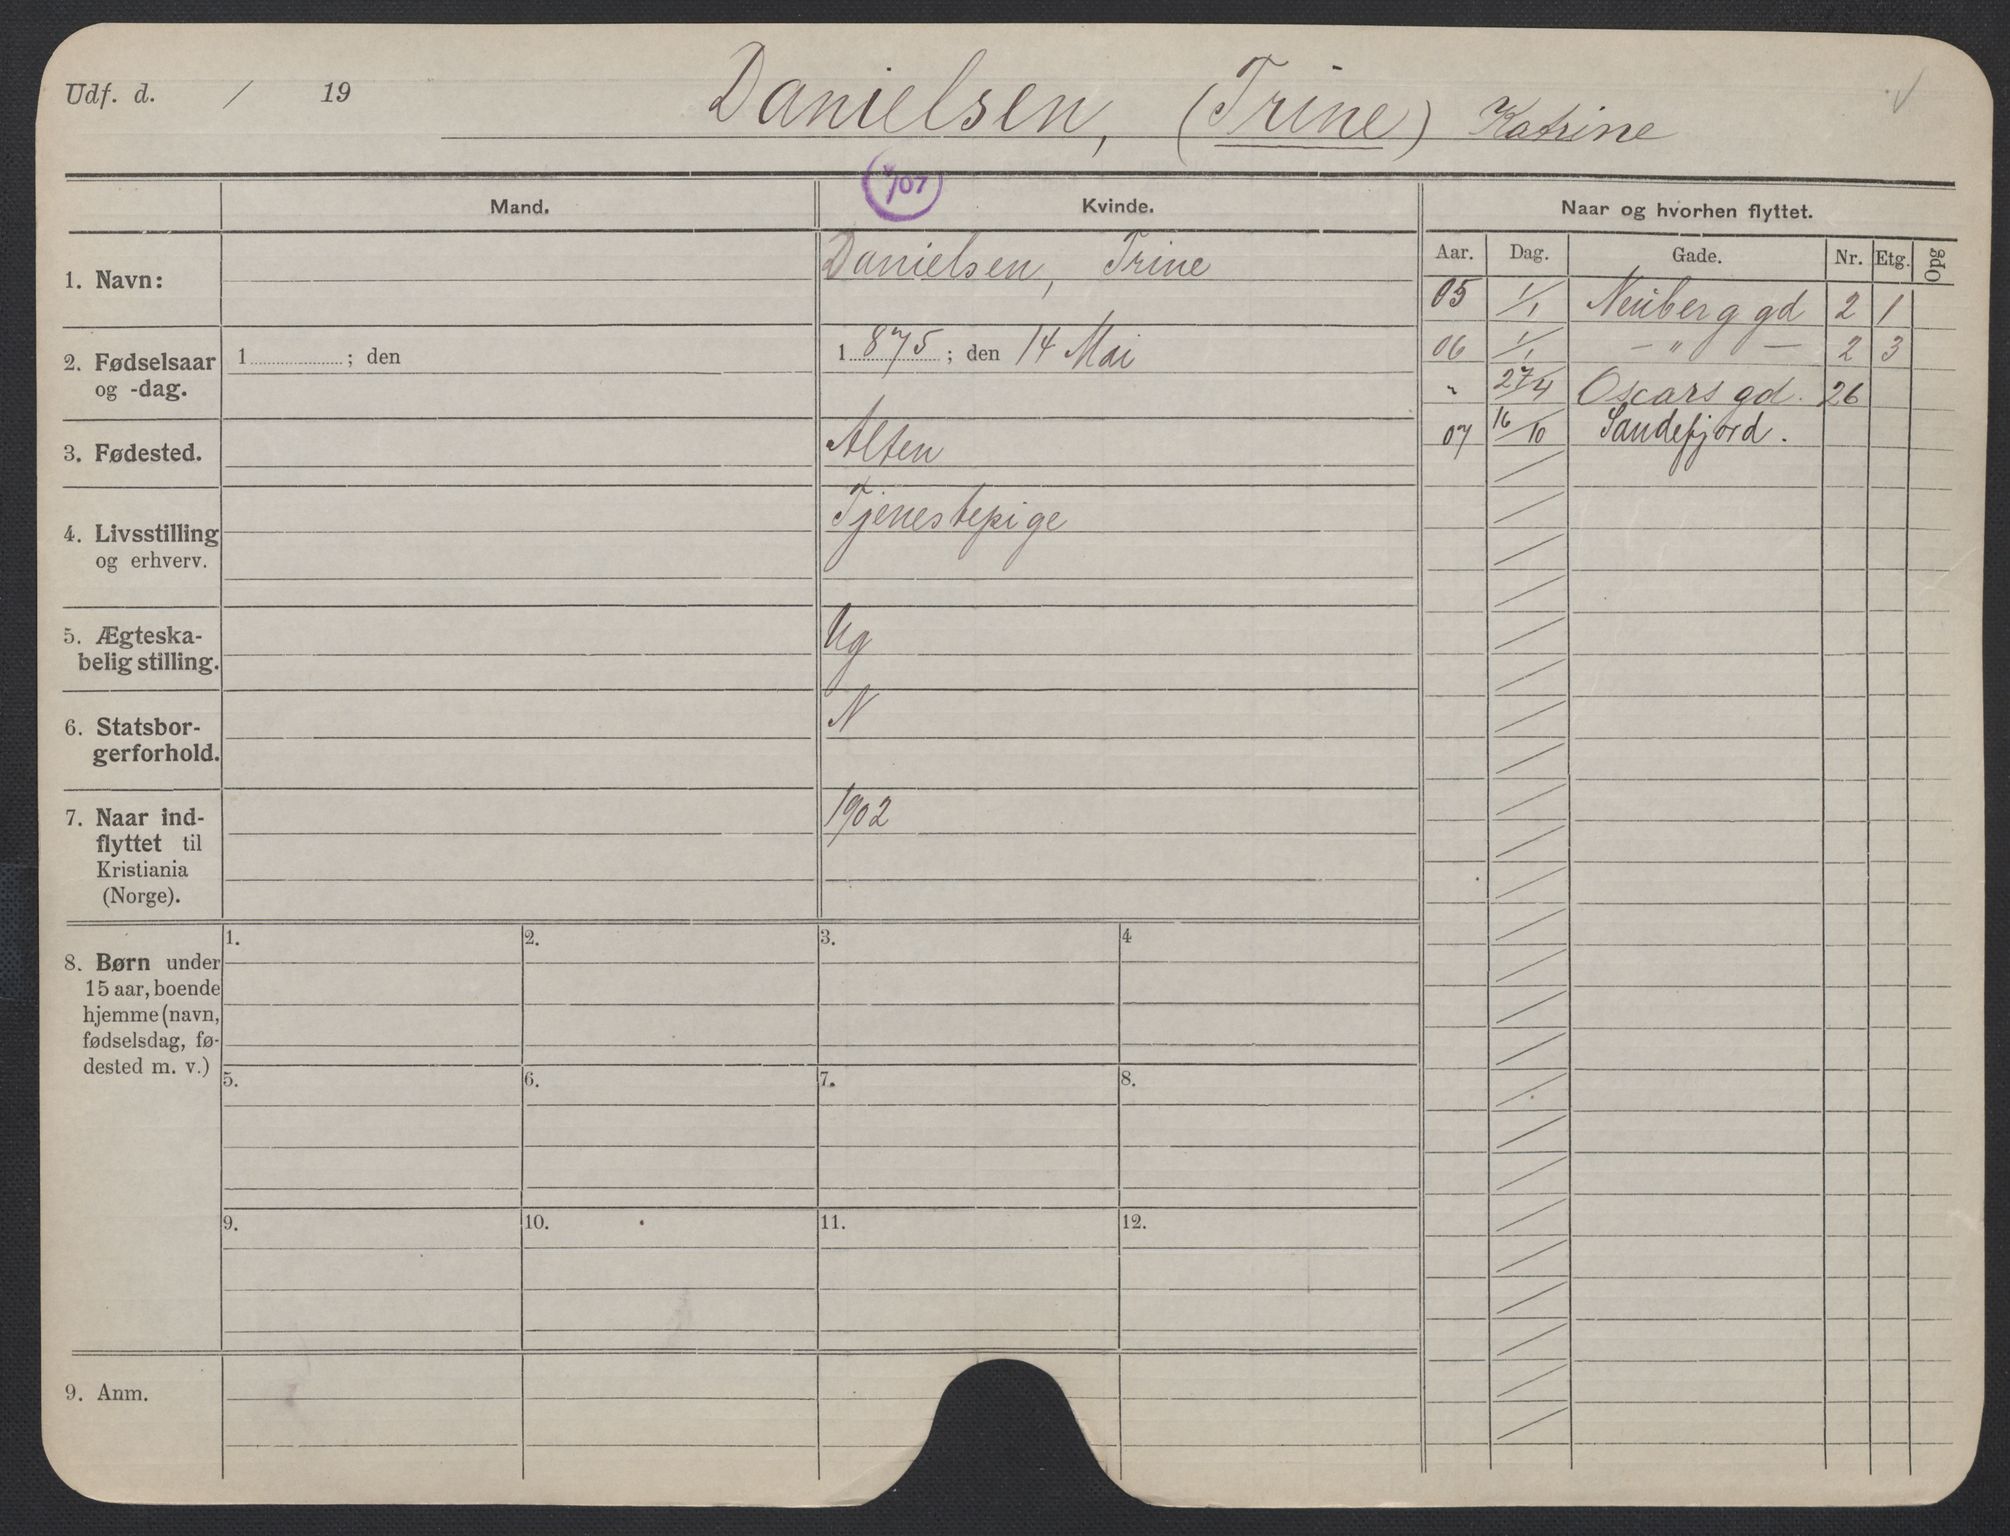 Udf. d. / 19
Danielsen, (Trine) Katrine
/07
Mand.
Kvinde.
Naar og hvorhen flyttet.
Aar. Dag. Gade. Nr. Etg. Opg
1. Navn:
Danielsen, Trine
2. Fødselsaar
og -dag.
1 ; den
1875 ; den 14 Mai
3. Fødested.
Alten
4. Livsstilling
og erhverv.
Tjenestepige
5. Ægteska-
belig stilling.
Ug
6. Statsbor-
gerforhold.
N
7. Naar ind-
flyttet til
Kristiania
(Norge).
1902
05 1/1 Neuberg gd 2 1
06 1/1 — " — 2 3
" 27/4 Oscars gd. 26
07 16/10 Sandefjord.
8. Børn under
15 aar, boende
hjemme (navn,
fødselsdag, fø-
dested m. v.)
1. 2. 3. 4
5. 6. 7. 8.
9. 10. 11. 12.
9. Anm.